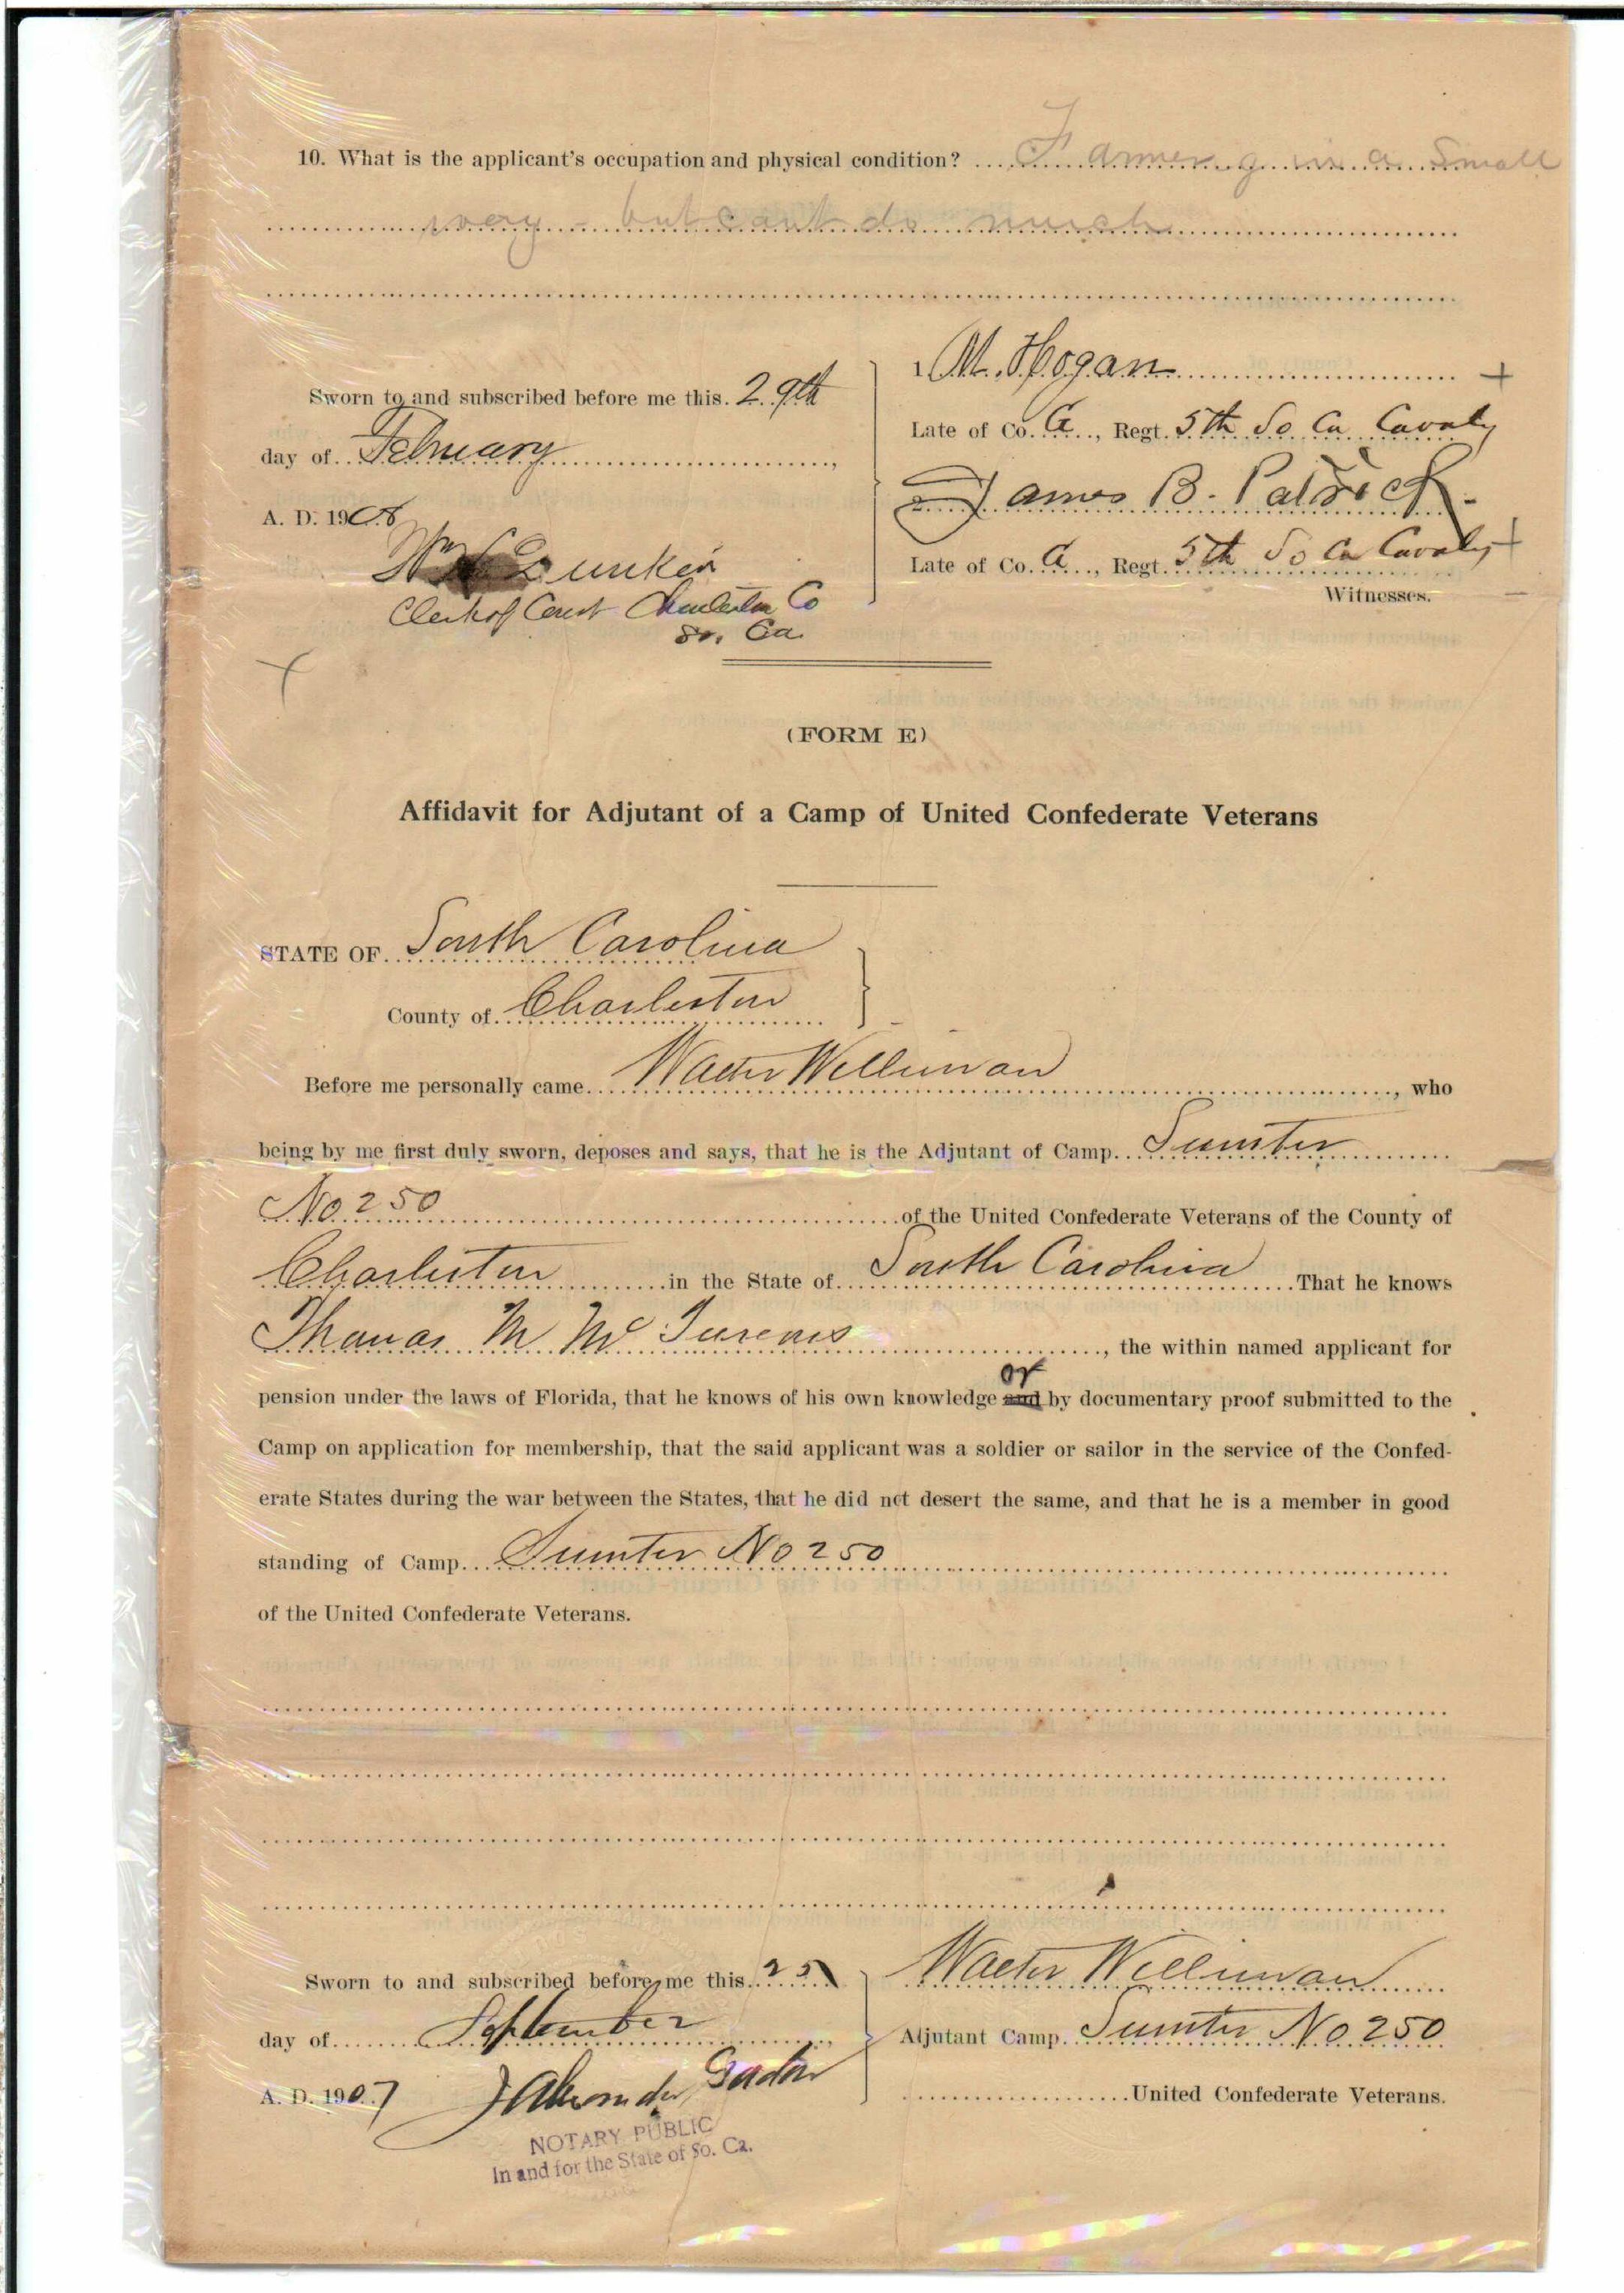 10. What is the applicant's occupation and physical condition? Farming in a small
way - but cant do much
Sworn to and subscribed before me this 29th
day of February,
A. D. 1908
Wm Dunkin
Clerk of Court Charleston Co
So. Ca.
1 M. Hogan
Late of Co. A, Regt. 5th So Ca Cavalry
2 James B. Patrick
Late of Co. A, Regt. 5th So Ca Cavalry
Witnesses.
(FORM E)
Affidavit for Adjutant of a Camp of United Confederate Veterans
STATE OF South Carolina
County of Charleston
Before me personally came Walter Williman, who
being by me first duly sworn, deposes and says, that he is the Adjutant of Camp Sumter
No 250 of the United Confederate Veterans of the County of
Charleston in the State of South Carolina. That he knows
Thomas M Mc, the within named applicant for
or
pension under the laws of Florida, that he knows of his own knowledge and by documentary proof submitted to the
Camp on application for membership, that the said applicant was a soldier or sailor in the service of the Confed-
erate States during the war between the States, that he did not desert the same, and that he is a member in good
standing of Camp Sumter No 250
of the United Confederate Veterans.
Sworn to and subscribed before me this 25
day of September,
A. D. 1907
NOTARY PUBLIC
In and for the State of So. Ca.
Walter Williman
Adjutant Camp Sumter No 250
United Confederate Veterans.